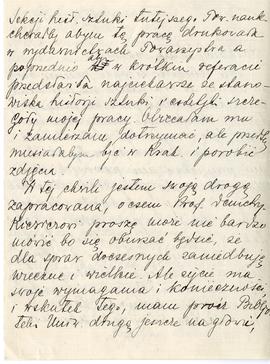 sekcji hist. sztuki tutejszego Tow. nauk
chciałby abym tę pracę drukowała
w wydawnictwach Towarzystwa a
poprzednio aby w krótkim referacie
przedstawiła najciekawsze ze stano-
wiska historji sztuki i estetyki szcze-
góły mojej pracy. Obiecałam mu
i zamierzam dotrzymać, ale przedtem
musiałabym być w Krak. i porobić
zdjęcia.
W tej chwili jestem swoją drogą
zapracowana, o czem Prof. Demby
proszę może nie bardzo
mówić bo się oburzać będzie, że
dla spraw doczesnych zaniedbuję
wieczne i wielkie. Ale życie ma
swoje wymagania i konieczności
i wskutek tego, mam prócz Bibljo-
teki Uniw. drugą jeszcze na głowie,